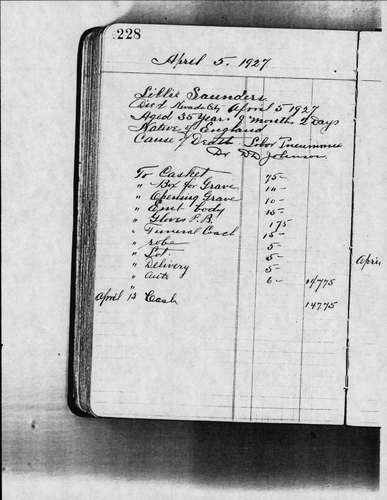 228
April 5. 1927
Lillie Saunders
Died Nevada City April 5 1927
Aged 35 Years 9 Months 2 Days
Native of England
Cause of Death Lobar Pneumonia
Dr D D Johnson
To Casket 75-
" Box for Grave
" Opening Grave 10-
" Emb body
" Gloves P.B. 1 75
" Funeral Coach 15-
" robe 5-
" Lot. 5-
" Delivery 5-
" Auto 6- 147 75
April 13 " Cash 147 75
Apri